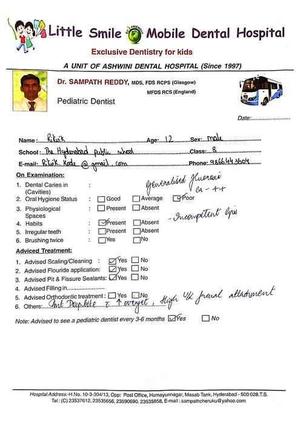 Little Smile Mobile Dental Hospital
Exclusive Dentistry for kids
A UNIT OF ASHWINI DENTAL HOSPITAL (Since 1997)
Dr. SAMPATH REDDY, MDS, FDS RCPS (Glasgow)
MFDS RCS (England)
Pediatric Dentist
Date:
Name: Ritik Age: 12 Sex: male
School: The Hyderabad public school Class: 8
E-mail: @gmail.com Phone:
On Examination:
1. Dental Caries in (Cavities) Generalised
2. Oral Hygiene Status : Good Average Poor
3. Physiological Spaces : Present Absent
4. Habits : Present Absent - Incompetent lips
5. Irregular teeth : Present Absent
6. Brushing twice : Yes No
Advised Treatment:
1. Advised Scaling/Cleaning : Yes No
2. Advised Flouride application: Yes No
3. Advised Pit & Fissure Sealants: Yes No
4. Advised Filling in
5. Advised Orthodontic treatment : Yes No
6. Others: High frenal attachment
Note: Advised to see a pediatric dentist every 3-6 months Yes No
Hospital Address: H.No. 10-3-304/13, Opp: Post Office, Humayunnagar, Masab Tank, Hyderabad - 500 028 T.S.
Tel: (C) 23537612, 23535656, 23590690, 23535658. E-mail : sampathcheruku@yahoo.com